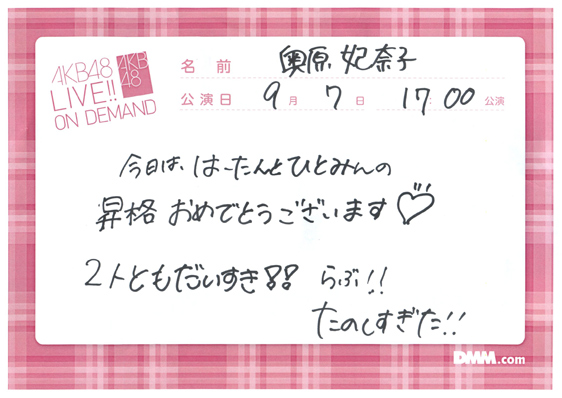 AKB48
LIVE!!
ON DEMAND
AKB
48
名前 奥原妃奈子
公演日 9月7日 17:00公演
今日は、はーたんとひとみんの
昇格おめでとうございます♡
2人ともだいすき!! らぶ!!
たのしすぎた!!
DMM.com